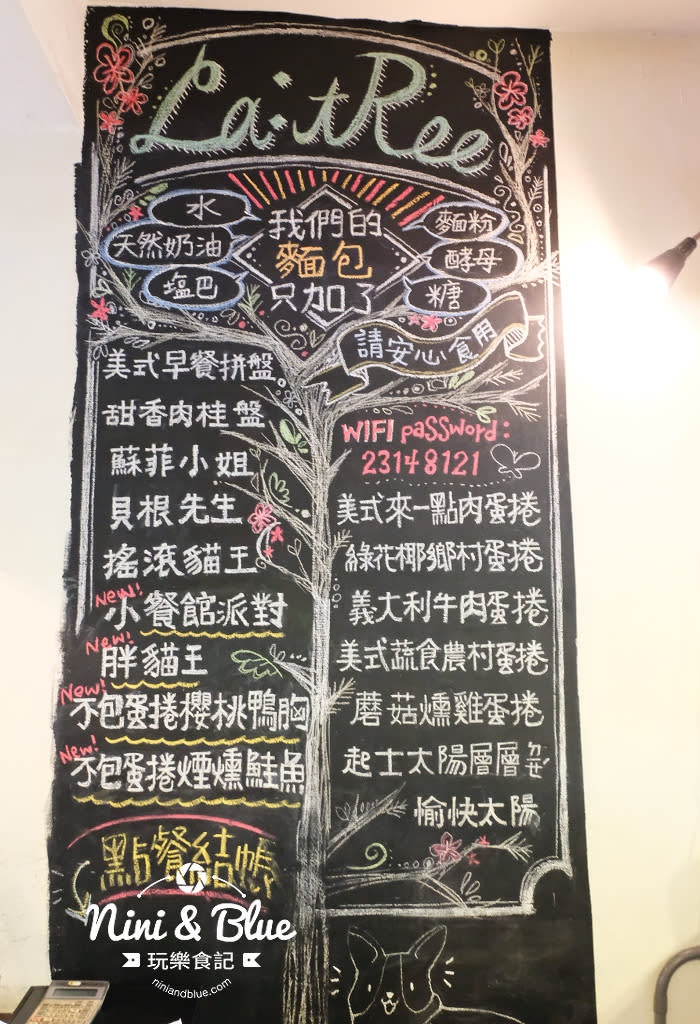 La:tRee
水
天然奶油
塩巴
我們的
麵包
只加了
麵粉
酵母
糖
請安心食用
美式早餐拼盤。
甜香肉桂盤
蘇菲小姐
貝根先生
搖滾貓王
New!
小餐館派對
New!
胖貓王
New!
不包蛋捲櫻桃鴨胸
New!
不包蛋捲煙燻鮭魚
點餐結帳
WIFI password:
23148121
美式來一點肉蛋捲
綠花椰鄉村蛋捲
義大利牛肉蛋捲
美式蔬食農村蛋捲
蘑菇燻雞蛋捲
起士太陽層層ㄉㄝ
愉快太陽
Nini & Blue
玩樂食記
niniandblue.com